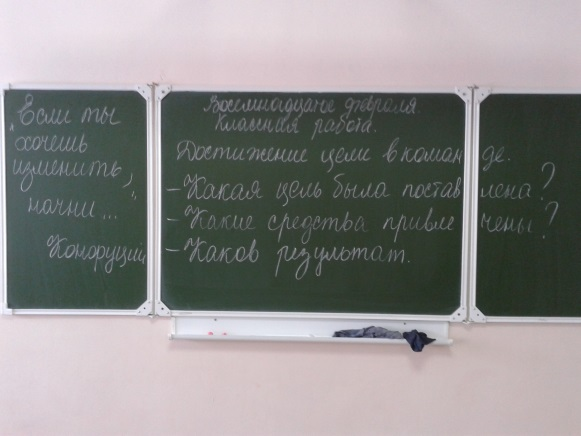 „Если ты
хочешь
изменить,
начни ..."
Конфуций
Восемнадцатое февраля.
Классная работа.
Достижение цели в команде.
- Какая цель была поставлена?
- Какие средства привлечены?
- Каков результат.